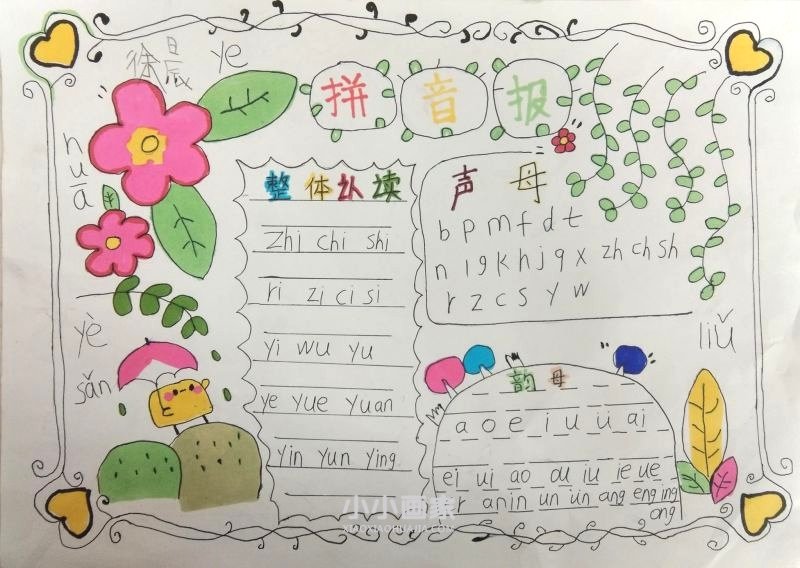 徐晨
ye
拼音报
huā
整体认读
zhi chi shi
ri zi ci si
yi wu yu
ye yue yuan
yin yun ying
声母
b p m f d t
n l g k h j q x zh ch sh
r z c s y w
yè
sǎn
liǔ
韵母
a o e i u ü ai
ei ui ao ou iu ie üe
er an in un ün ang eng ing
ong
小小画家
XIAOXIAOHUAJIA.COM